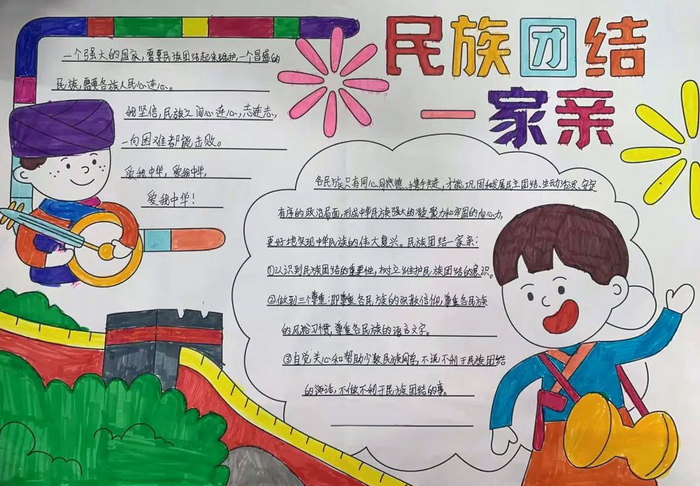 民族团结
一家亲
一个强大的国家，需要民族团结起来维护，一个昌盛的
民族，需要各族人民心连心。
坚信，民族之间心连心，志连志，
一切困难都能击败。
爱我中华，爱我中华，
爱我中华！
各民族只有同心同德、携手共进，才能巩固和发展民主团结、生动活泼、安定
有序的政治局面，形成中华民族强大的凝聚力和牢固的向心力，
更好地实现中华民族的伟大复兴。民族团结一家亲：
①认识到民族团结的重要性，树立维护民族团结的意识。
②做到三个尊重：即尊重各民族的宗教信仰，尊重各民族
的风俗习惯，尊重各民族的语言文字。
③自觉关心和帮助少数民族同学，不说不利于民族团结
的话，不做不利于民族团结的事。